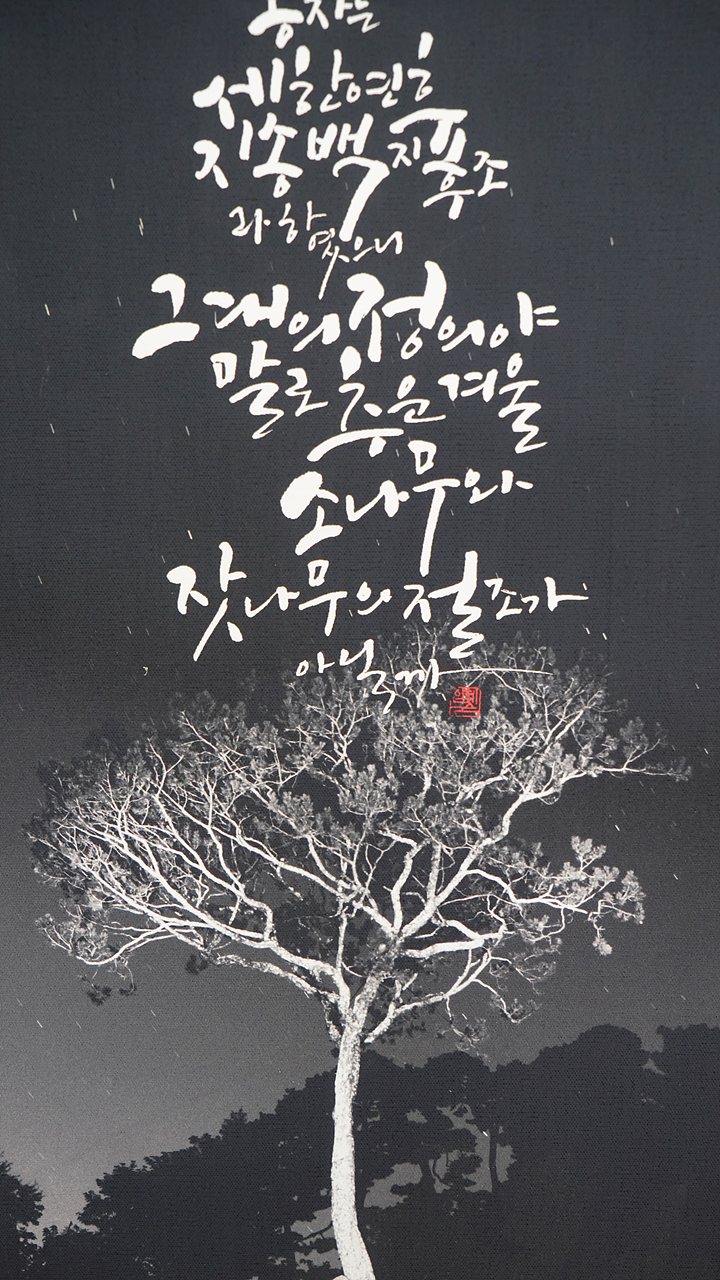 공자는
세한연후
지송백지후조
라 하였으니
그대의 정의야
말로 추운 겨울
소나무와
잣나무의 절조가
아닐까